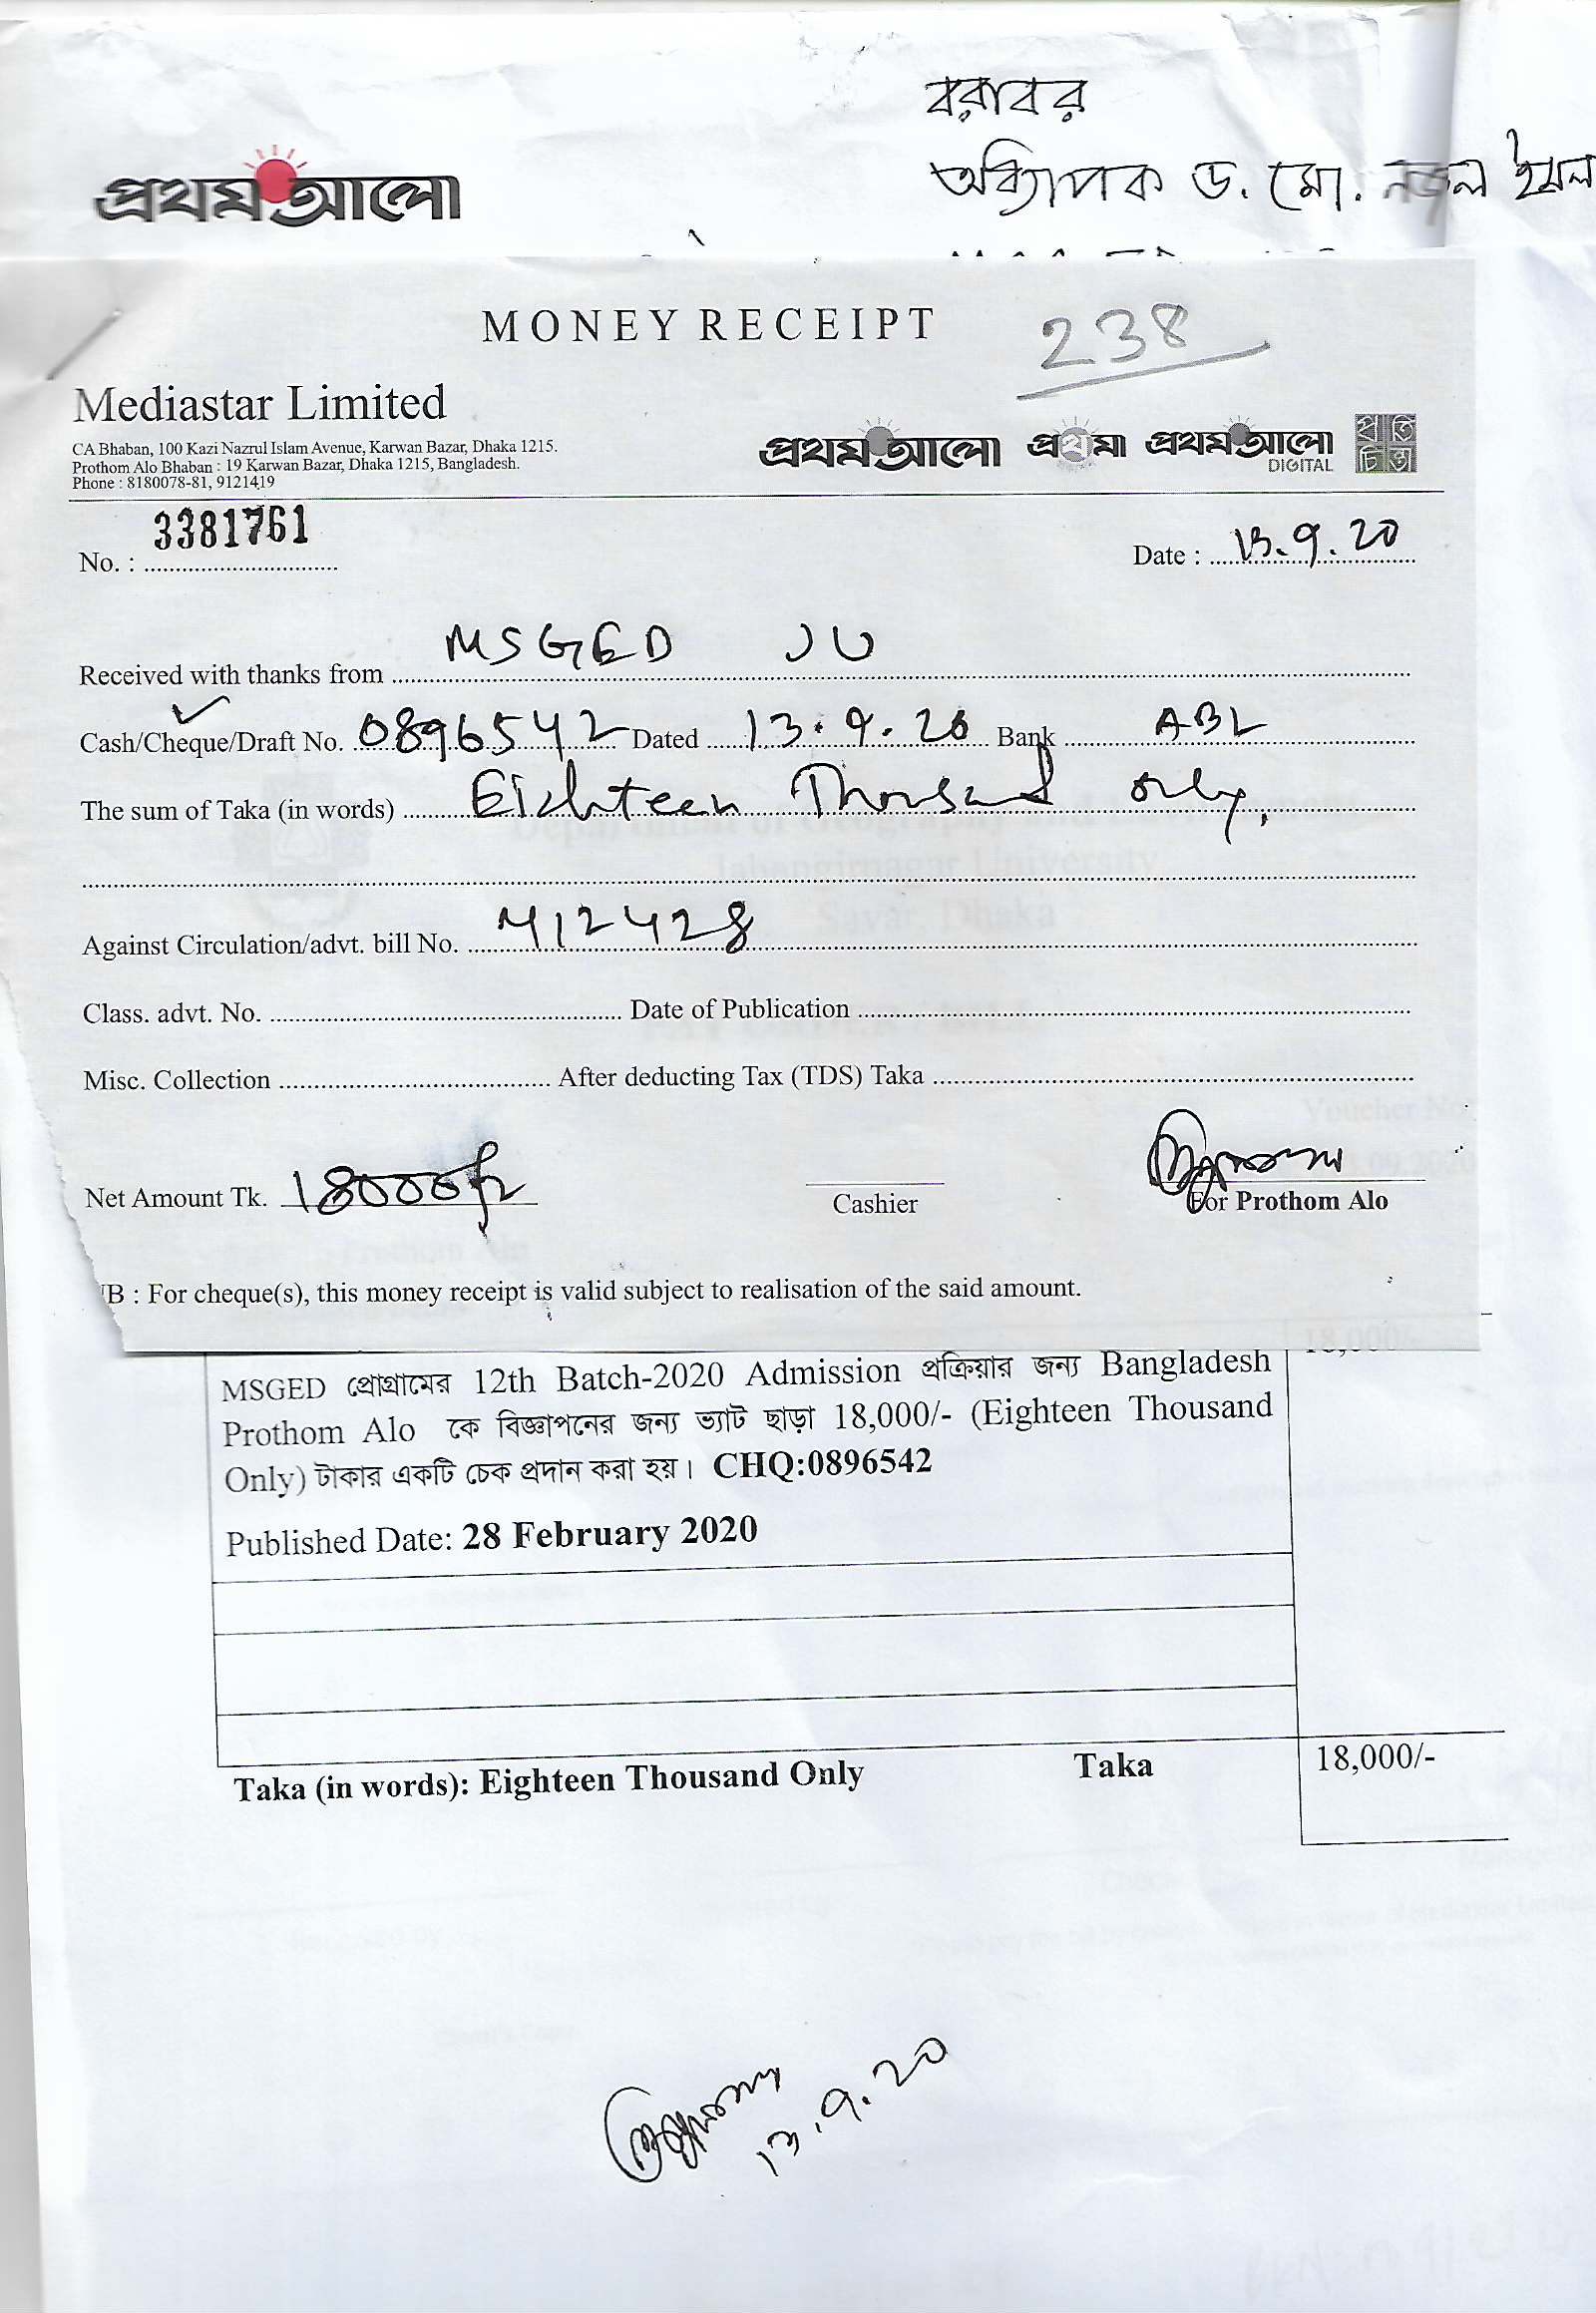 বরাবর
অধ্যাপক ড. মো.
প্রথম আলো
MONEY RECEIPT
238
Mediastar Limited
CA Bhaban, 100 Kazi Nazrul Islam Avenue, Karwan Bazar, Dhaka 1215.
Prothom Alo Bhaban : 19 Karwan Bazar, Dhaka 1215, Bangladesh.
Phone : 8180078-81, 9121419
প্রথম আলো প্রথমা প্রথম আলো DIGITAL প্রতিচিন্তা
No. : 3381761
Date : 13.9.20
Received with thanks from MSGED JU
Cash/Cheque/Draft No. 0896542 Dated 13.9.20 Bank ABL
The sum of Taka (in words) Eighteen Thousand only.
Against Circulation/advt. bill No. 412428
Class. advt. No. Date of Publication
Misc. Collection After deducting Tax (TDS) Taka
Net Amount Tk. 18000/=
Cashier
For Prothom Alo
B : For cheque(s), this money receipt is valid subject to realisation of the said amount.
18,000/-
MSGED প্রোগ্রামের 12th Batch-2020 Admission প্রক্রিয়ার জন্য Bangladesh
Prothom Alo কে বিজ্ঞাপনের জন্য ভ্যাট ছাড়া 18,000/- (Eighteen Thousand
Only) টাকার একটি চেক প্রদান করা হয়। CHQ:0896542
Published Date: 28 February 2020
Taka (in words): Eighteen Thousand Only Taka 18,000/-
13.9.20